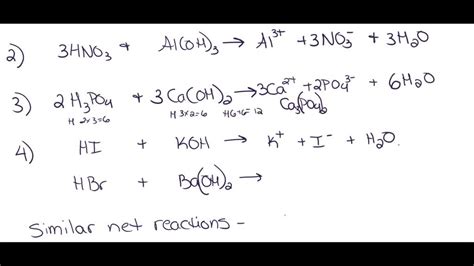 2) 3HNO₃ + Al(OH)₃ → Al³⁺ + 3NO₃⁻ + 3H₂O
3) 2H₃PO₄ + 3Ca(OH)₂ → 3Ca²⁺ + 2PO₄³⁻ + 6H₂O
H 2x3=6 H 3x2=6 H6+6=12 Ca₃(PO₄)₂
4) HI + KOH → K⁺ + I⁻ + H₂O.
HBr + Ba(OH)₂ →
Similar net reactions -